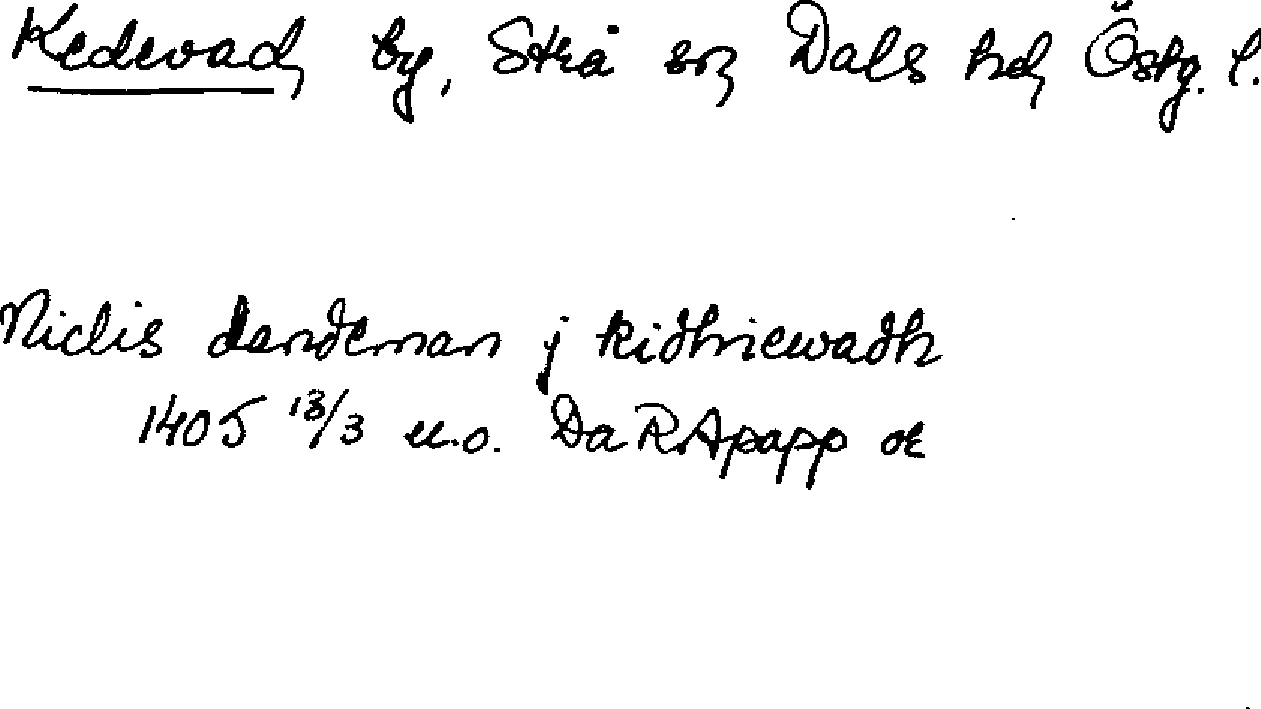 Kedevad, by, Strå sn, Dals hd, Östg. l.
Niclis dandeman j kidhriewadh
1405 13/3 u.o. Da RApapp or